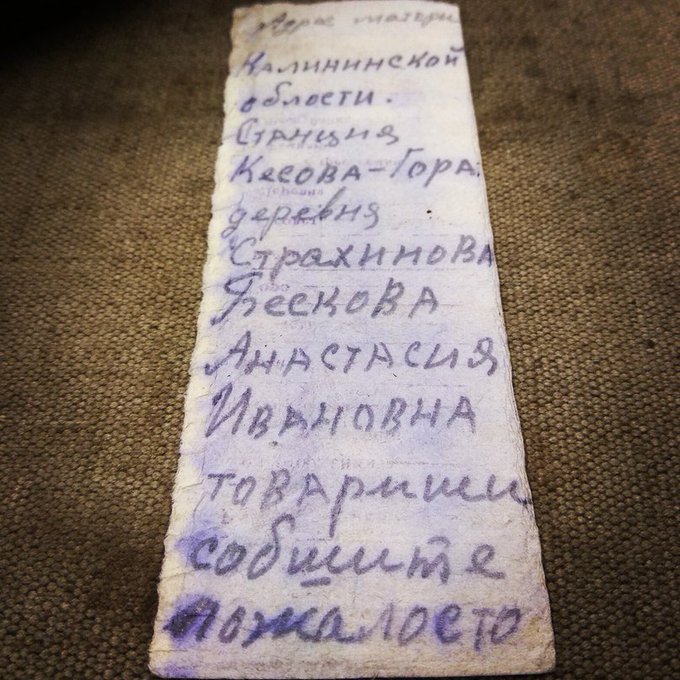 Адрес матери
Калининской
облости.
Станция
Кесова-Гора.
деревня
Страхинова
Бескова
Анастасия
Ивановна
товариши
собшите
пожалосто